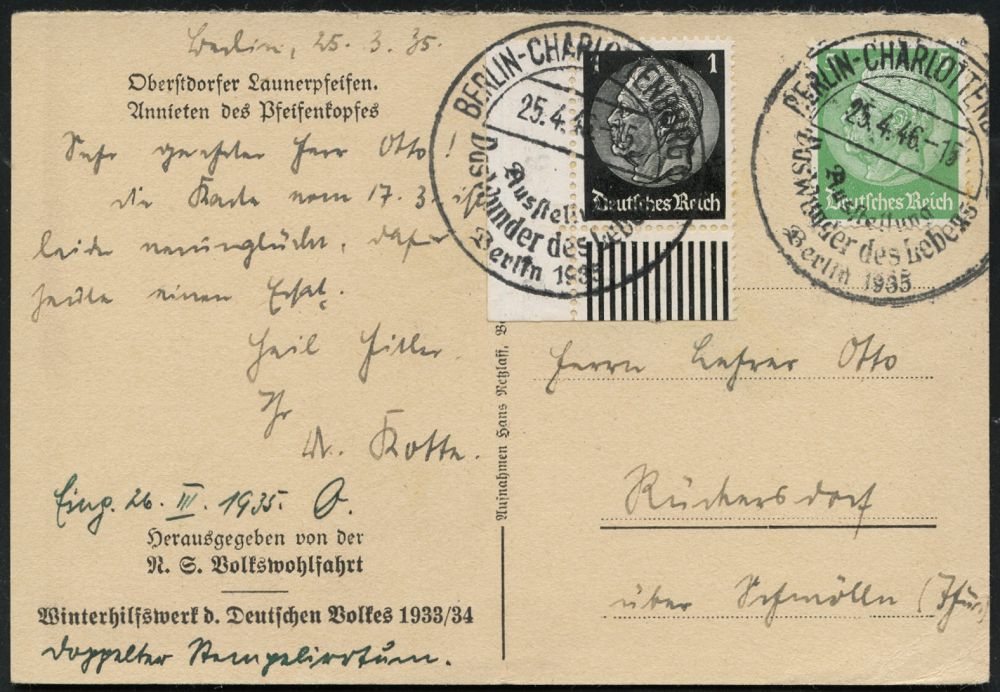 Berlin, 25. 3. 35.
Oberstdorfer Launerpfeifen.
Annieten des Pfeifenkopfes
Sehr geehrter Herr Otto!
die Karte vom 17. 3. ist
leider verunglückt, dafür
heute einen Ersatz.
Heil Hitler.
Ihr
Kotte.
Eing. 26. III. 1935. O.
Herausgegeben von der
N. S. Volkswohlfahrt
Winterhilfswerk d. Deutschen Volkes 1933/34
Doppelter Stempelirrtum.
Aufnahmen Hans Retzlaff, Be
BERLIN-CHARLOTTENBURG
25.4.46
Ausstellung
Das Wunder des Lebens
Berlin 1935
1 1
Deutsches Reich
BERLIN-CHARLOTTENB
25.4.46.-15
Ausstellung
Das Wunder des Lebens
Berlin 1935
Deutsches Reich
Herrn Lehrer Otto
Rückersdorf
über Schmölln (Thür